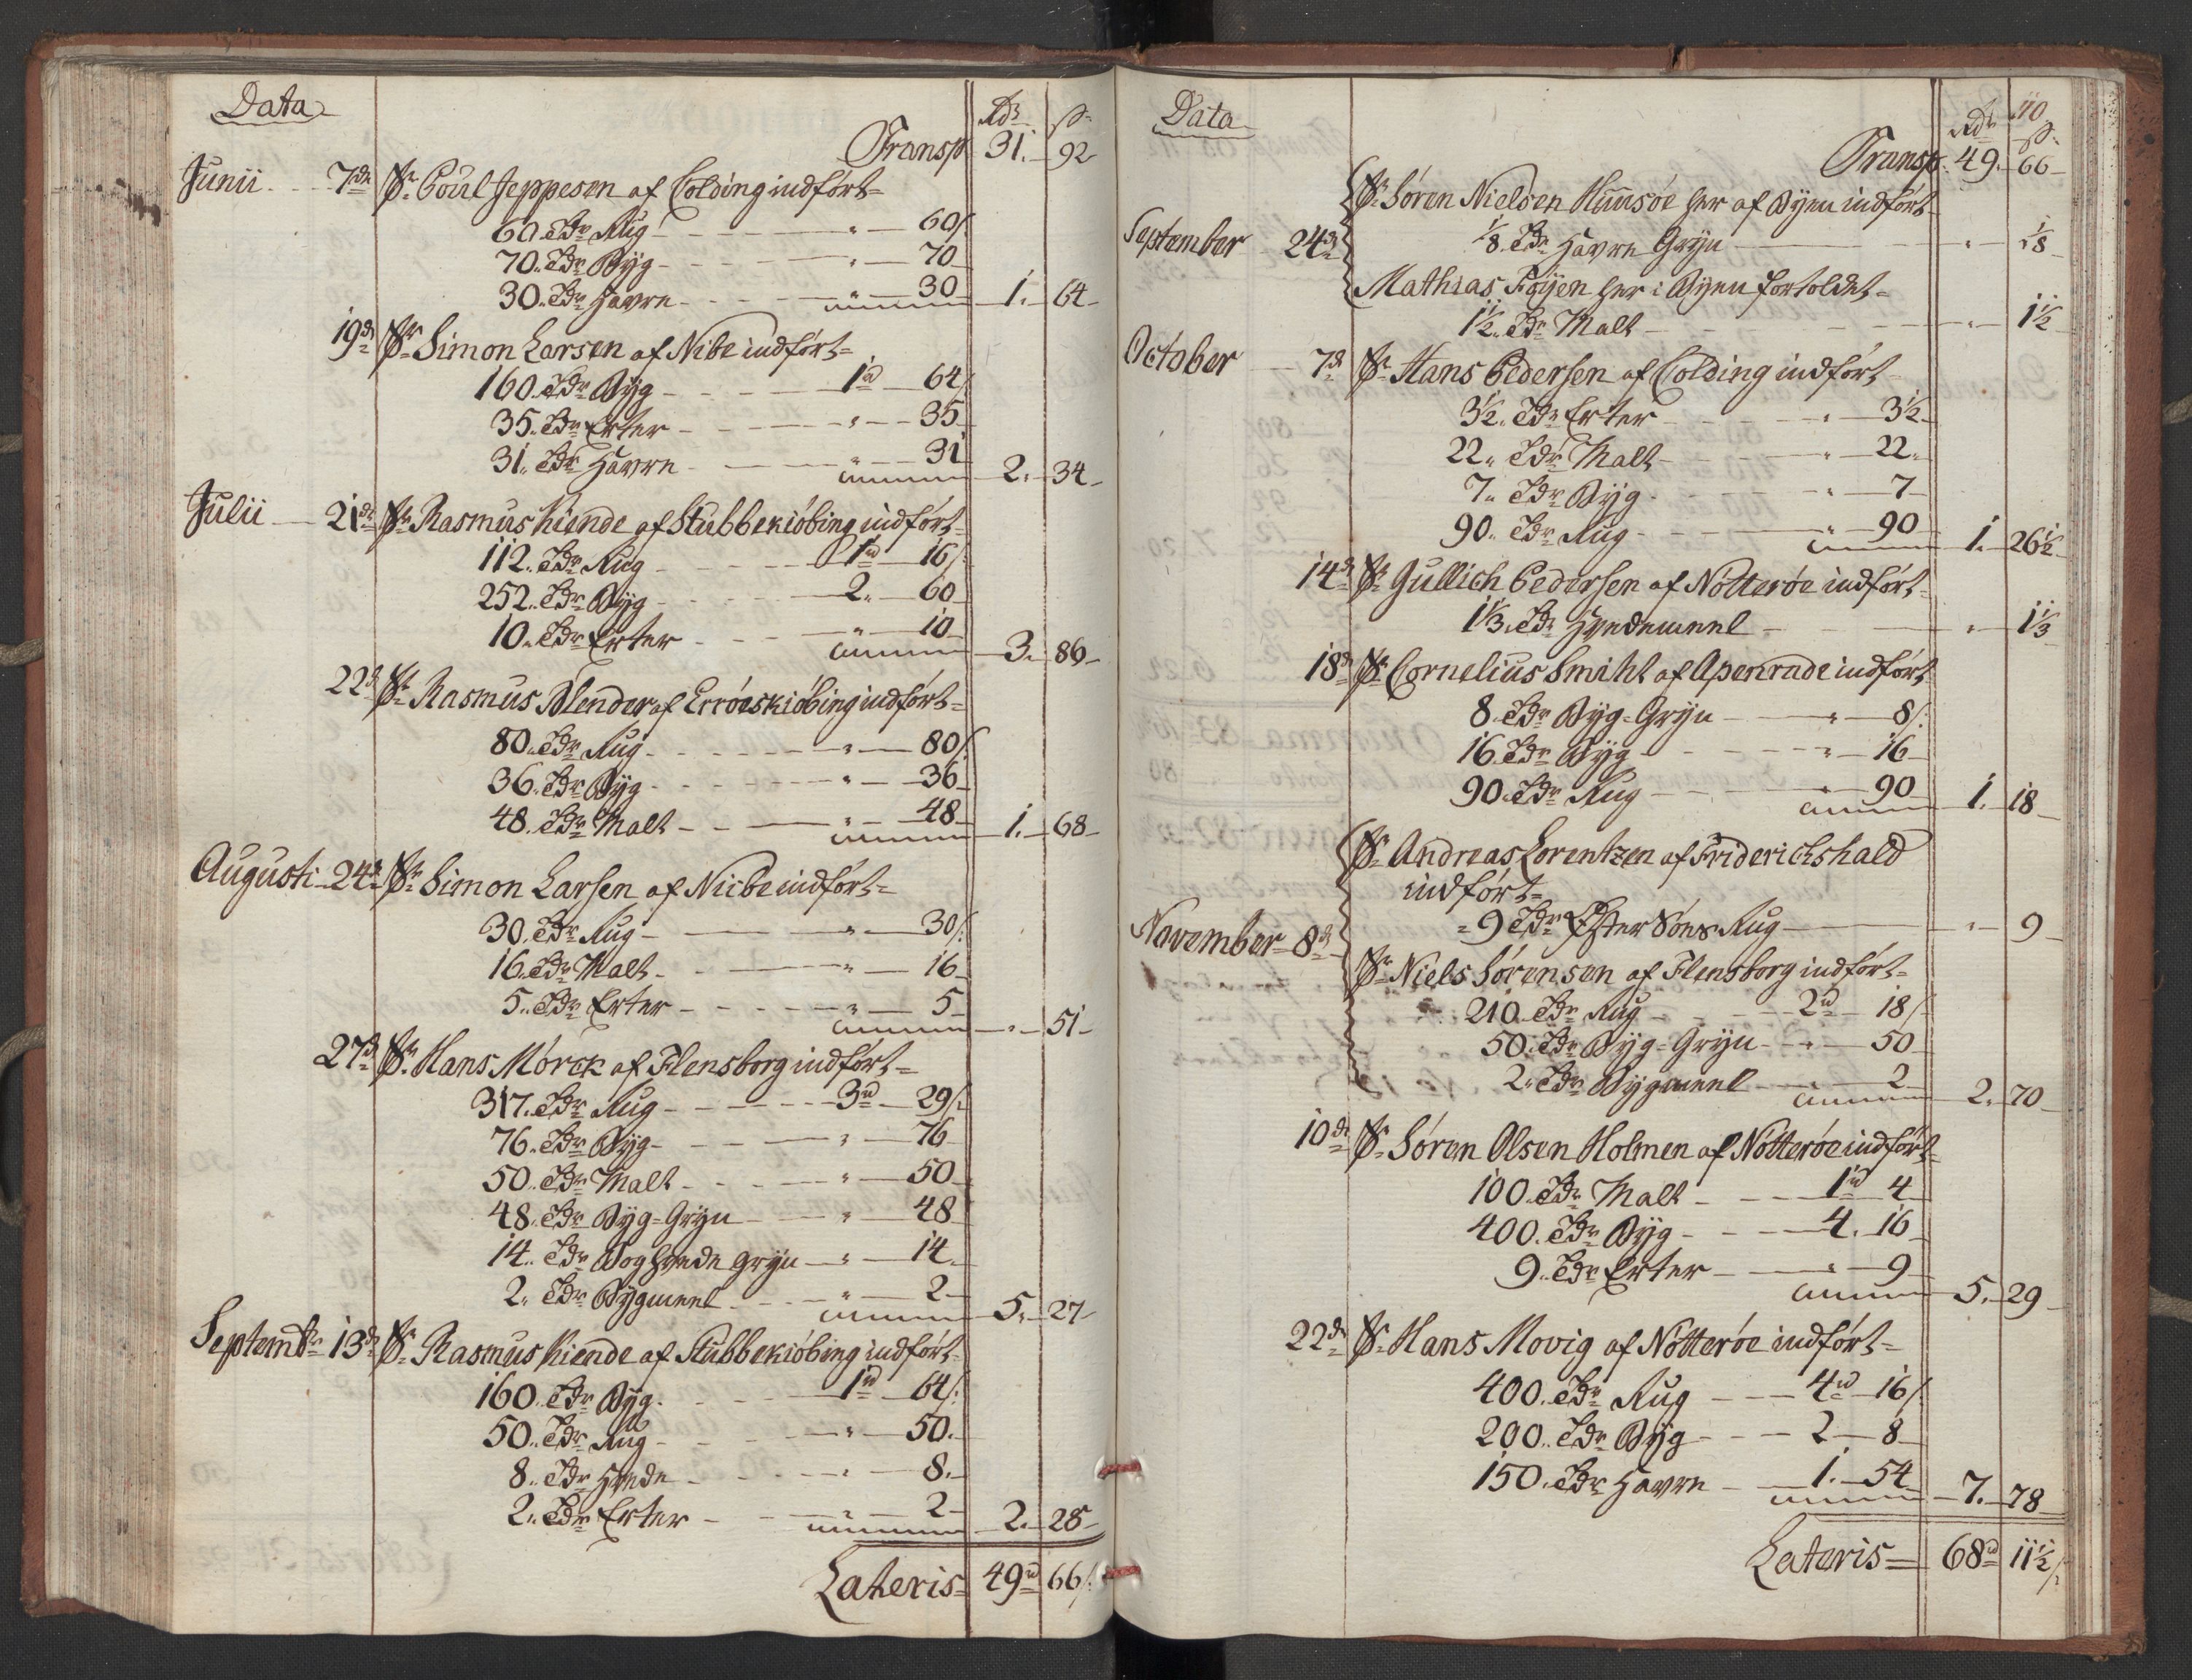 Data
Rdr ß
Transp 31. 92
Junii 7de Sr. Poul Jeppesen af Colding indført=
60. Tdr Rug " 60/
70. Tdr Byg " 70
30. Tdr Havre " 30 1. 64
19de Sr. Simon Larsen af Nibe indført=
160. Tdr Byg 1rd 64/
35. Tdr Erter " 35
31. Tdr Havre " 31 2. 34
Julii 21de Sr. Rasmus Kiende af Stubbekiöbing indført=
112. Tdr Rug 1rd 16/
252. Tdr Byg 2. 60
10. Tdr Erter " 10 3. 86
22de Sr. Rasmus Blender af Erröeskiöbing indført=
80. Tdr Rug " 80/
36. Tdr Byg " 36
48. Tdr Malt " 48 1. 68
Augusti 24de Sr. Simon Larsen af Niibe indført=
30. Tdr Rug " 30/
16. Tdr Malt " 16
5. Tdr Erter " 5 " 51
27de Sr. Hans Mörck af Flensborg indført=
317. Tdr Rug 3rd 29/
76. Tdr Byg " 76
50. Tdr Malt " 50
48. Tdr Byg=Gryn " 48
14. Tdr Boghvede gryn " 14
2. Tdr Bygmeel " 2 5. 27
Septembr 13de Sr. Rasmus Kiende af Stubbekiöbing indført=
160. Tdr Byg 1rd 64/
50. Tdr Rug " 50.
8. Tdr Hvede " 8.
2. Tdr Erter " 2 2. 28
Lateris= 49rd 66/
Data
110
Rdr ß
Transp. 49. 66
Sr. Søren Nielsen Huusöe her af Byen indført
September 24de 1/8. Tdr Havre Gryn " 1/8
Mathias Föyen her i Byen fortoldet=
1 1/2. Tdr Malt " 1 1/2
October 7de Sr. Hans Pedersen af Colding indført
3 1/2. Tdr Erter " 3 1/2
22. Tdr Malt " 22
7. Tdr Byg " 7
90. Tdr Rug " 90 1. 26 1/2
14de Sr. Gullich Pedersen af Nötteröe indført=
1 1/3. Tdr Hvedemeel " 1 1/3
18de Sr. Cornelius Smiht af Apenrade indført
8. Tdr Byg=Gryn " 8/
16. Tdr Byg " 16
90. Tdr Rug " 90 1. 18
Sr. Andreas Lorentzen af Friderichshald
indført=
November 8de 9 Tdr Öster Söes Rug " 9
Sr. Niels Sörensen af Flensborg indført=
210. Tdr Rug 2rd 18/
50. Tdr Byg=Gryn " 50
2. Tdr Bygmeel " 2 2. 70
10de Sr. Sören Olsen Holmen af Nötteröe indført=
100. Tdr Malt 1rd 4
400. Tdr Byg 4. 16
9. Tdr Erter " 9 5. 29
22de Sr. Hans Movig af Nötteröe indført=
400. Tdr Rug 4rd 16/
200. Tdr Byg 2 8
150. Tdr Havre 1. 54 7. 78
Lateris= 68rd 11 1/2/